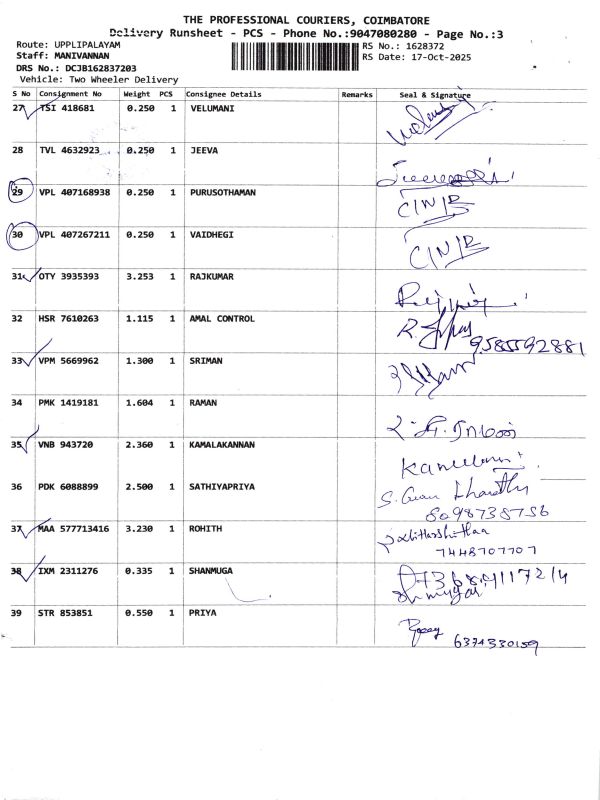 THE PROFESSIONAL COURIERS, COIMBATORE
Delivery Runsheet - PCS - Phone No.:9047080280 - Page No.:3
Route: UPPLIPALAYAM RS No.: 1628372
Staff: MANIVANNAN RS Date: 17-Oct-2025
DRS No.: DCJB162837203
Vehicle: Two Wheeler Delivery
S No Consignment No Weight PCS Consignee Details Remarks Seal & Signature
27 TSI 418681 0.250 1 VELUMANI
28 TVL 4632923 0.250 1 JEEVA
29 VPL 407168938 0.250 1 PURUSOTHAMAN C/N/R
30 VPL 407267211 0.250 1 VAIDHEGI C/N/R
31 OTY 3935393 3.253 1 RAJKUMAR
32 HSR 7610263 1.115 1 AMAL CONTROL
9585592881
33 VPM 5669962 1.300 1 SRIMAN
34 PMK 1419181 1.604 1 RAMAN
35 VNB 943720 2.360 1 KAMALAKANNAN
36 PDK 6088899 2.500 1 SATHIYAPRIYA
8098738756
37 MAA 577713416 3.230 1 ROHITH
7448707707
38 IXM 2311276 0.335 1 SHANMUGA
39 STR 853851 0.550 1 PRIYA
6374330159